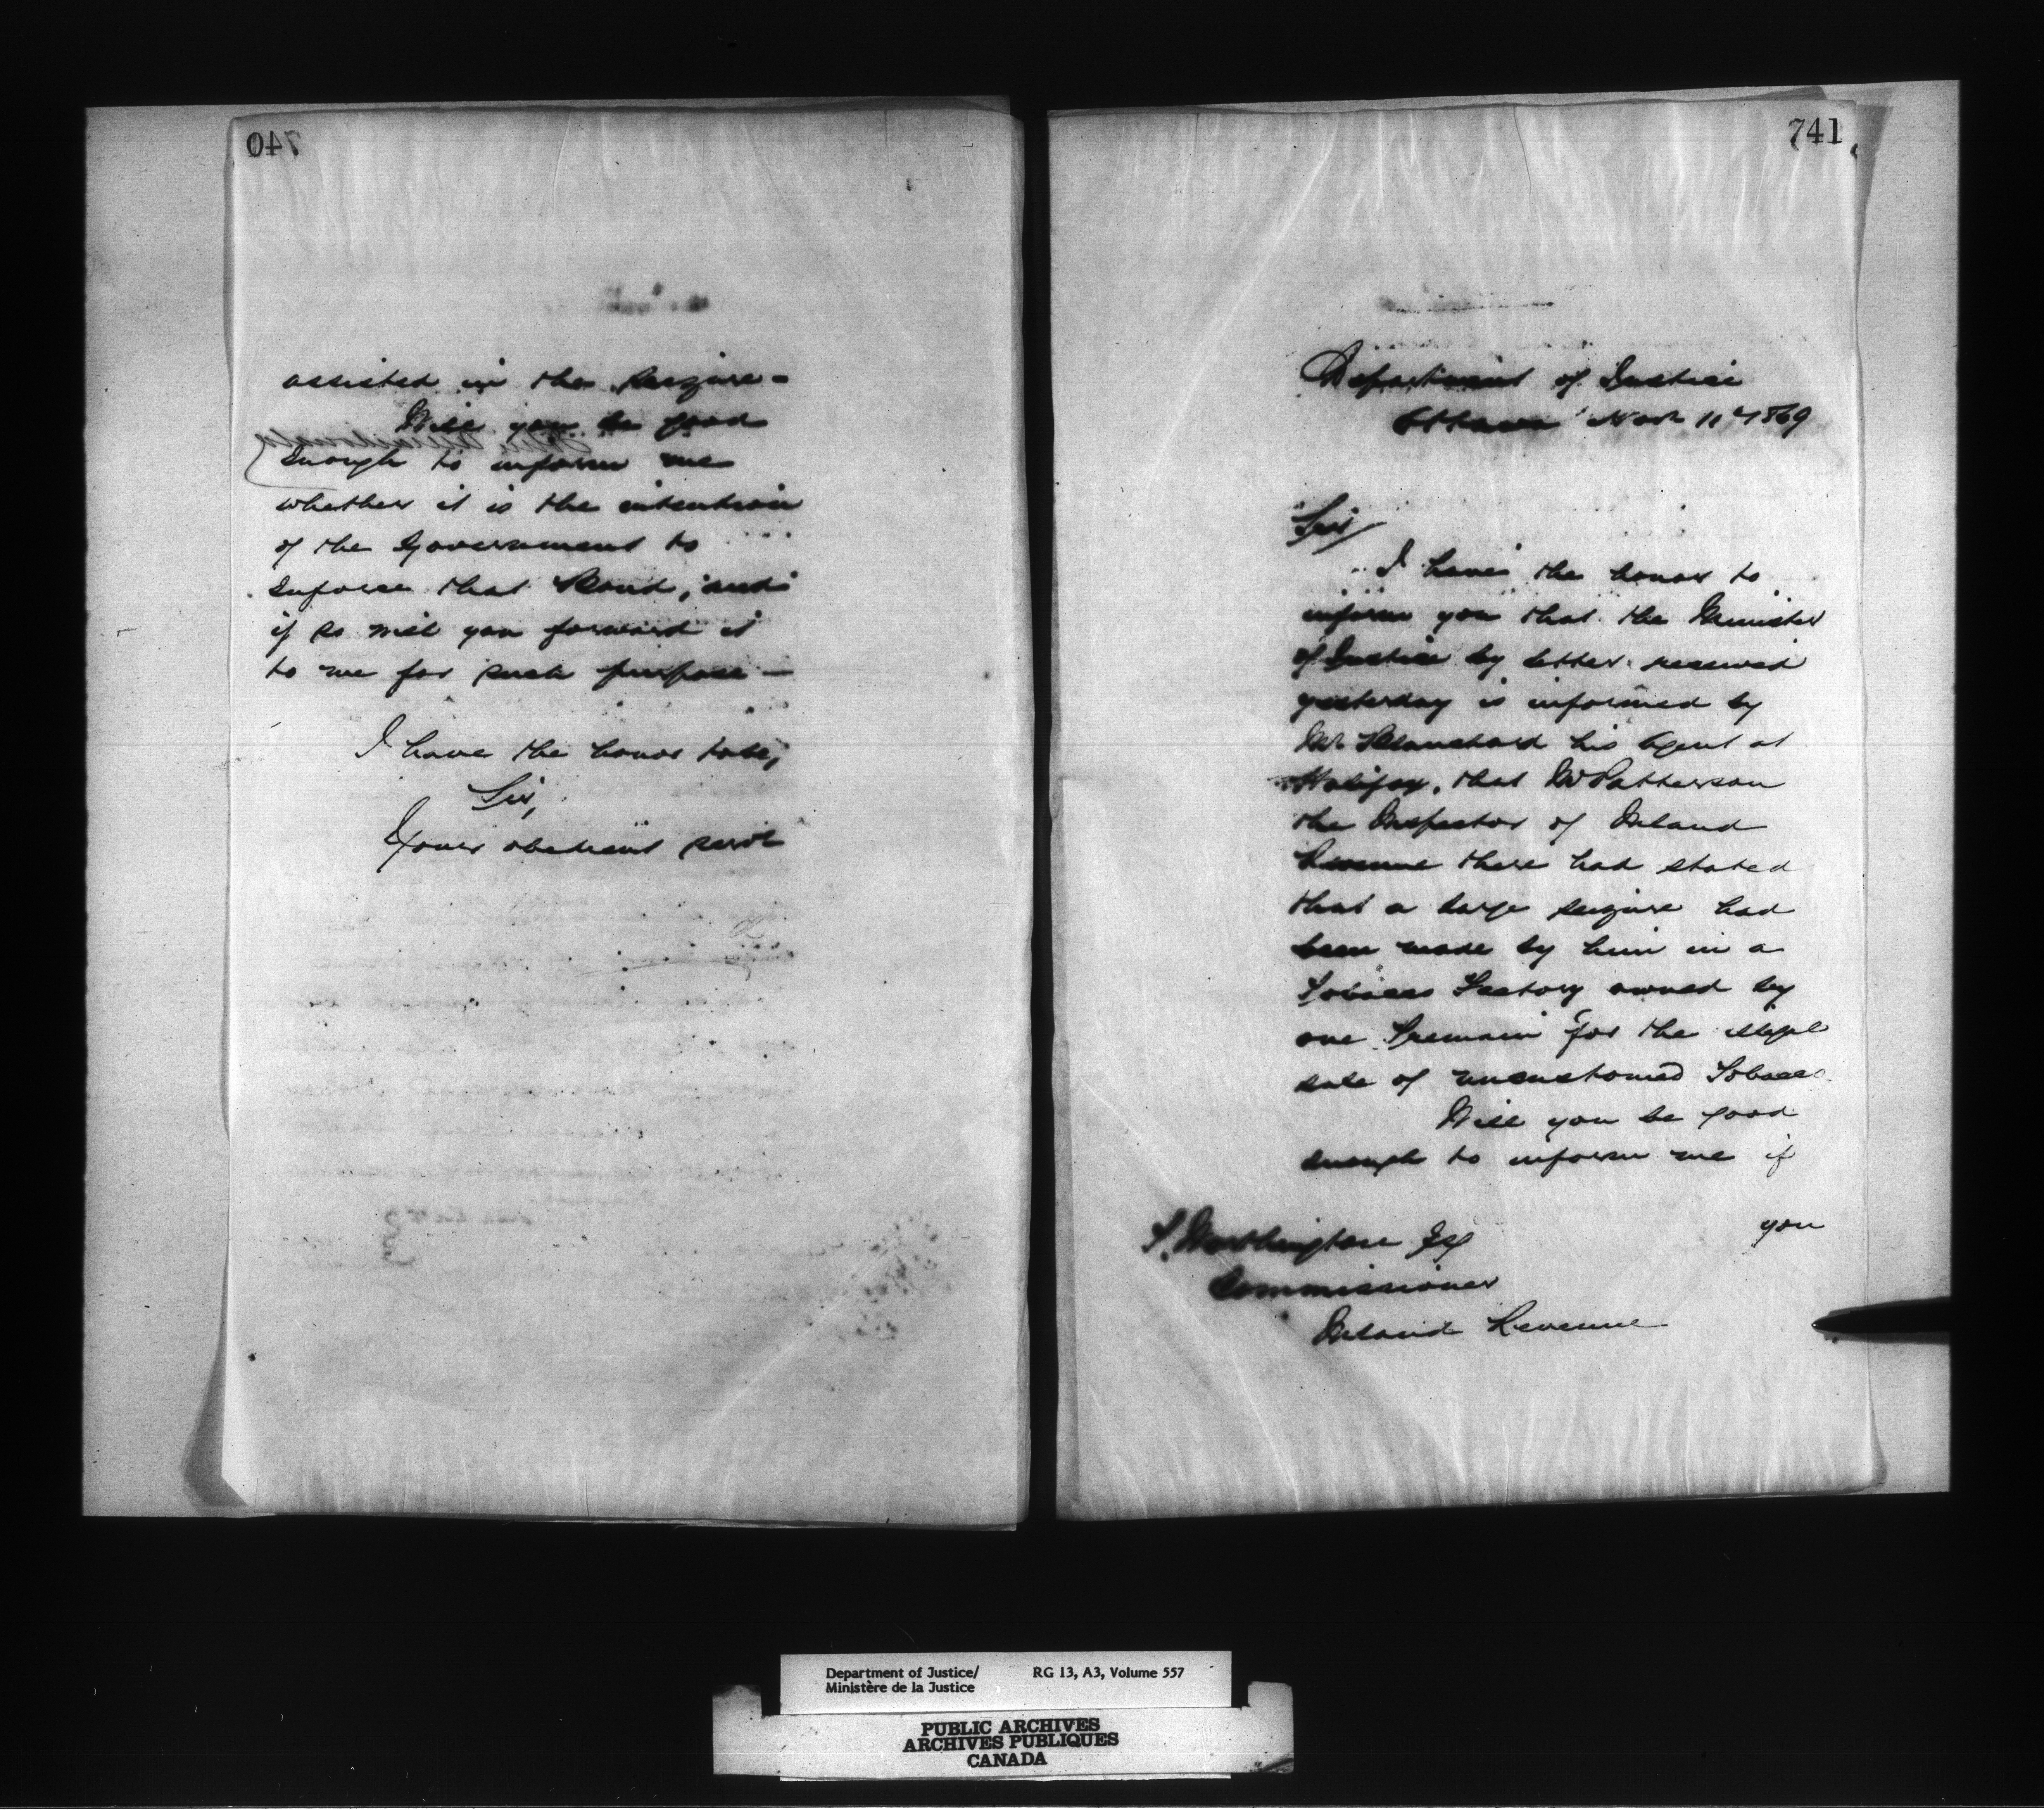 740
assisted in the seizure -
Will you be good
enough to inform me
whether it is the intention
of the Government to
enforce that Bond, and
if so will you forward it
to me for such purpose -
I have the honor to be,
Sir,
Your obedient servt
741
Department of Justice
Ottawa Nov 11th 1869
Sir
I have the honor to
inform you that the Minister
of Justice by letter received
yesterday is informed by
Mr Blanchard his Agent at
Halifax, that Mr Patterson
the Inspector of Inland
Revenue there had stated
that a large seizure had
been made by him in a
Tobacco Factory owned by
one for the illegal
sale of uncustomed Tobacco.
Will you be good
enough to inform me if
you
T. Worthington Esq
Commissioner
Inland Revenue
Department of Justice/ RG 13, A3, Volume 557
Ministère de la Justice
PUBLIC ARCHIVES
ARCHIVES PUBLIQUES
CANADA